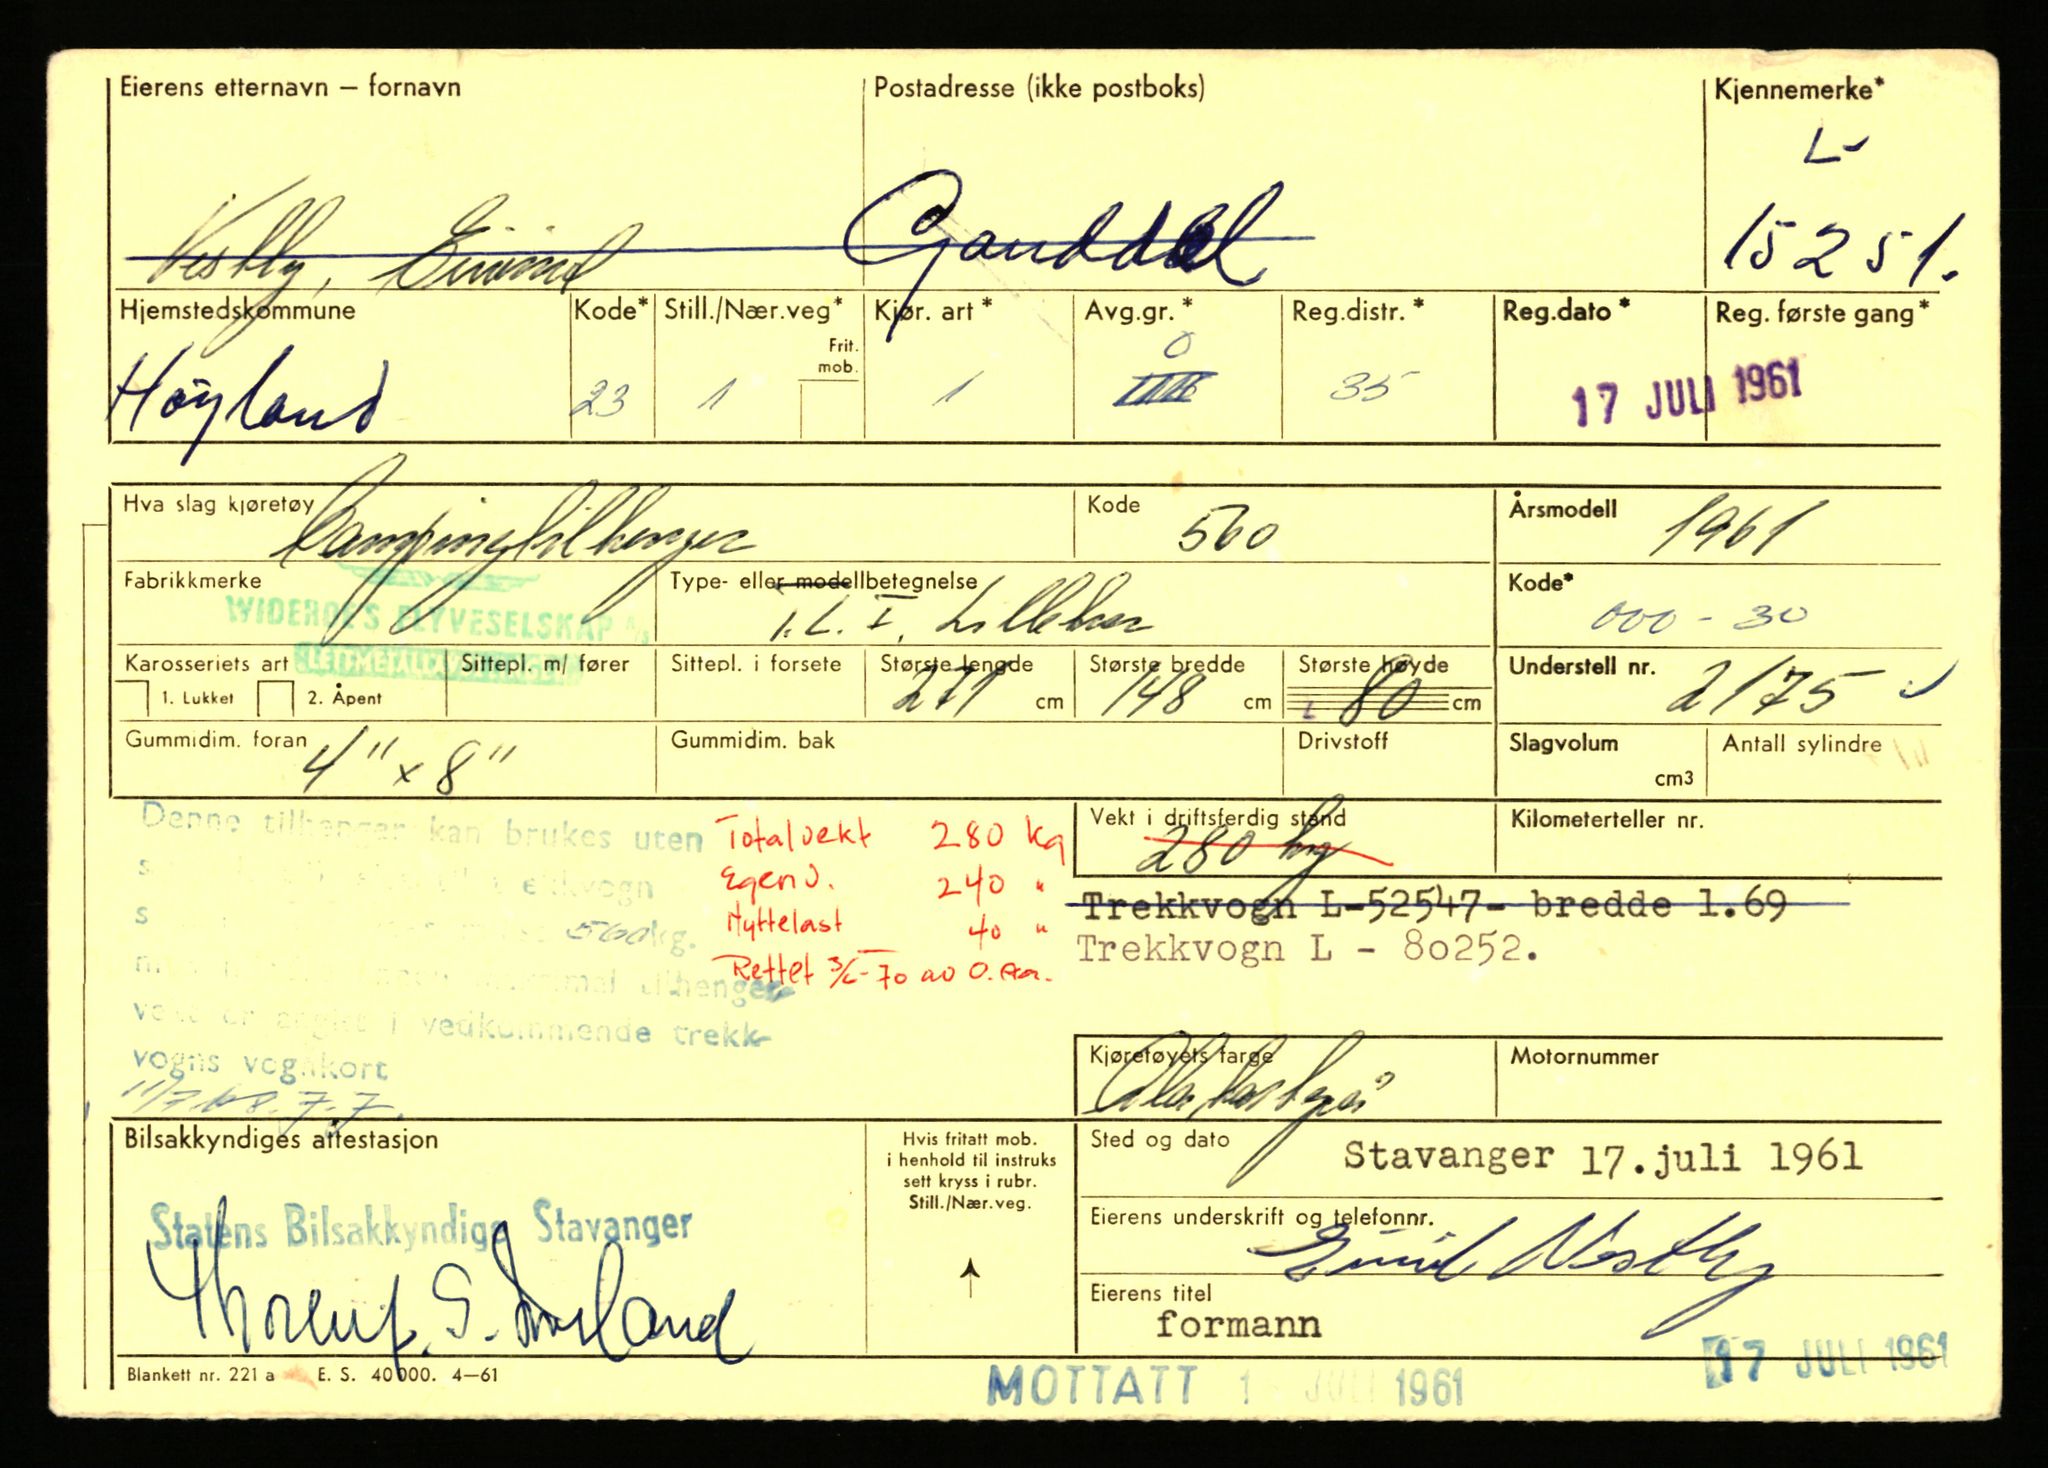 Eierens etternavn – fornavn
Postadresse (ikke postboks)
Kjennemerke*
L-
Vestby, Eivind
Ganddal
15251.
Hjemstedskommune
Kode*
Still./Nær.veg*
Kjør. art*
Avg.gr.*
Reg.distr.*
Reg.dato*
Reg. første gang*
Frit.
mob.
0
Høyland
23
1
1
35
17 JULI 1961
Hva slag kjøretøy
Campingtilhenger
Kode
560
Årsmodell
1961
Fabrikkmerke
WIDERØE'S FLYVESELSKAP A/S
Type- eller modellbetegnelse
T.L.I. Lillebror
Kode*
000 - 30
Karosseriets art
1. Lukket
2. Åpent
Sittepl. m/ fører
Sittepl. i forsete
Største lengde
271 cm
Største bredde
148 cm
Største høyde
80 cm
Understell nr.
2175
Gummidim. foran
4" x 8"
Gummidim. bak
Drivstoff
Slagvolum
cm3
Antall sylindre
Denne tilhenger kan brukes uten
kg.
tilhenger
vekt er angitt i vedkommende trekk-
vogns vognkort
Totalvekt 280 kg
Egenv. 240 "
Nyttelast 40 "
Rettet -70 av
Vekt i driftsferdig stand
280 kg
Kilometerteller nr.
Trekkvogn L-52547- bredde 1.69
Trekkvogn L - 80252.
Kjøretøyets farge
Motornummer
Bilsakkyndiges attestasjon
Statens Bilsakkyndige Stavanger
Hvis fritatt mob.
i henhold til instruks
sett kryss i rubr.
Still./Nær.veg.
Sted og dato
Stavanger 17.juli 1961
Eierens underskrift og telefonnr.
Eivind Vestby
Eierens titel
formann
17 JULI 1961
Blankett nr. 221 a E. S. 40 000. 4–61
MOTTATT 1 JULI 1961